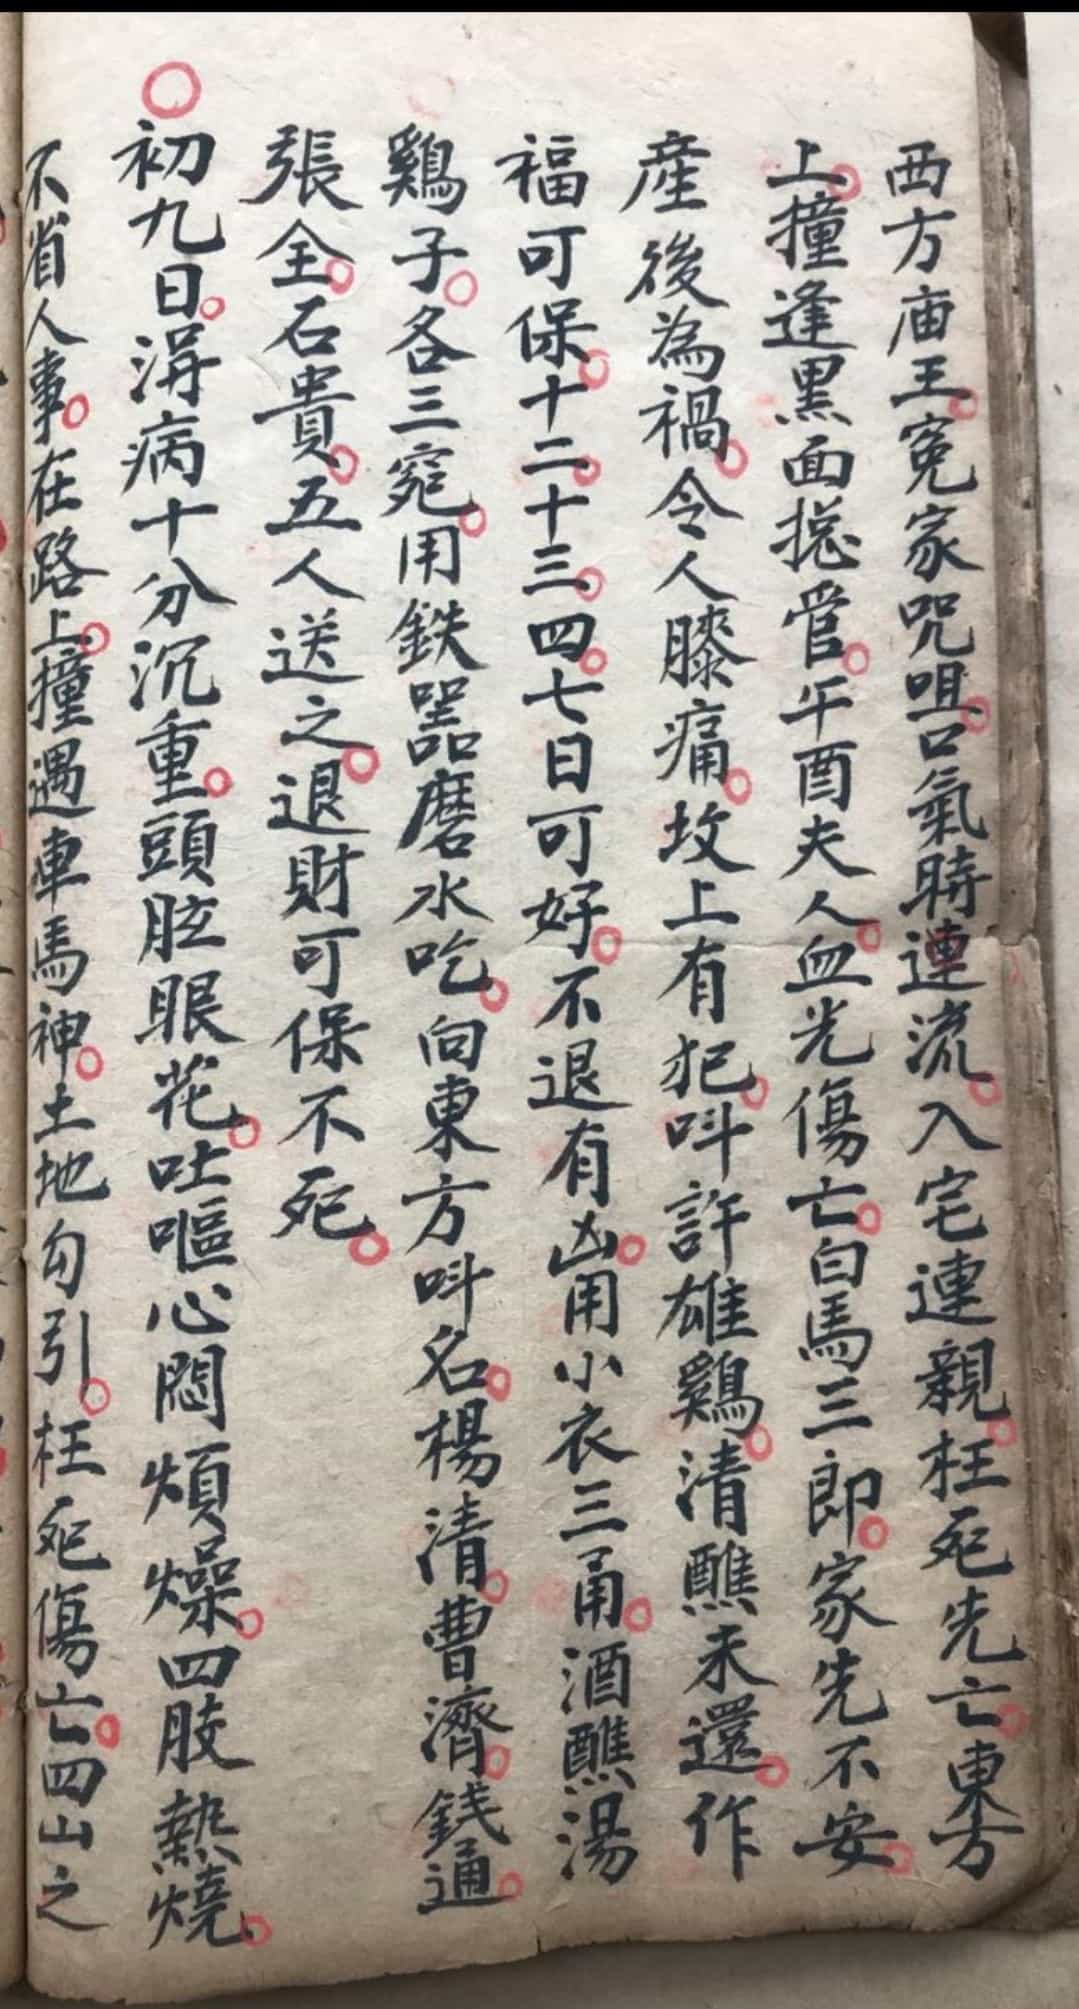 西方庙王。冤家咒咀。口氣時連流。入宅連親。枉死先亡。東方
上。撞逢黑面摠管。午酉夫人。血光傷亡。白馬三郎。家先不安。
産後為禍。令人膝痛。坟上有犯。呌許雄鷄。清醮未還。作
福可保。十二。十三。四。七日可好。不退有凶。用小衣三甬。酒醮湯
鷄子。各三宛。用鉄噐磨水吃。向東方呌名。楊清。曹濟。錢通。
張全。石貴。五人送之。退財可保不死。
初九日。淂病十分沉重。頭眩眼花。吐嘔心悶煩燥。四肢熱燒。
不省人事。在路上。撞遇車馬神。土地勾引。枉死傷亡。四山之